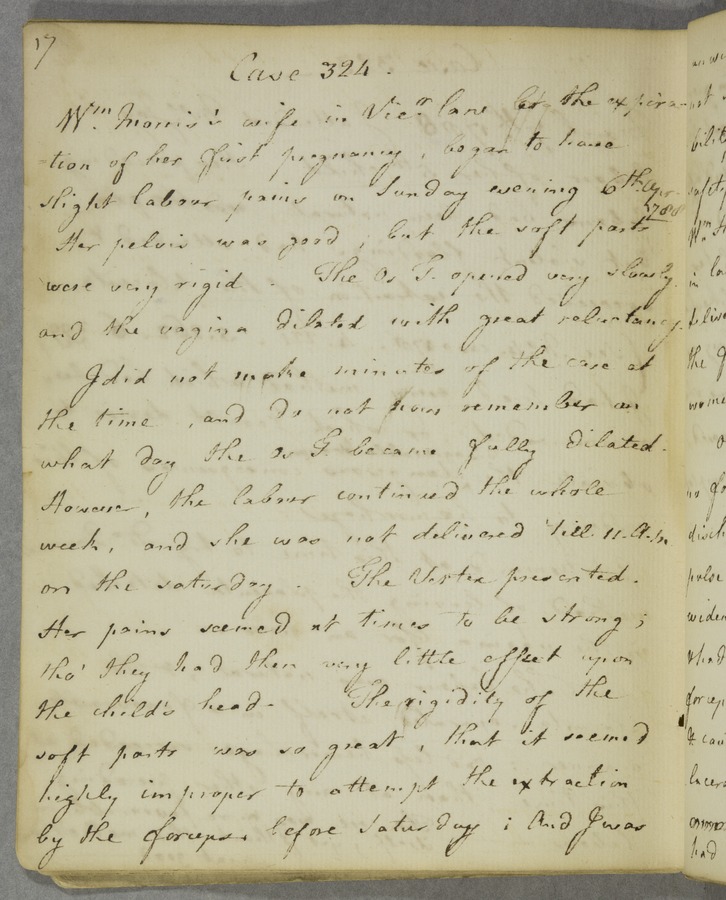 17
Case 324.
Wm. Morris's wife in Vicr. lane by the expira-
-tion of her first pregnancy, began to have
slight labour pains on Sunday evening 6th Apr.
1788
Her pelvis was good; but the soft parts
were very rigid. The Os T. opened very slowly.
and the vagina dilated with great reluctancy.
I did not make minutes of the case at
the time, and do not now remember on
what day the os T. became fully dilated.
However, the labour continued the whole
week, and she was not delivered 'till 11. A.M.
on the saturday. The Vertex presented.
Her pains seemed at times to be strong;
tho' they had then very little effect upon
the child's head. The rigidity of the
soft parts was so great, that it seemed
highly improper to attempt the extraction
by the forceps, before Saturday; And I was